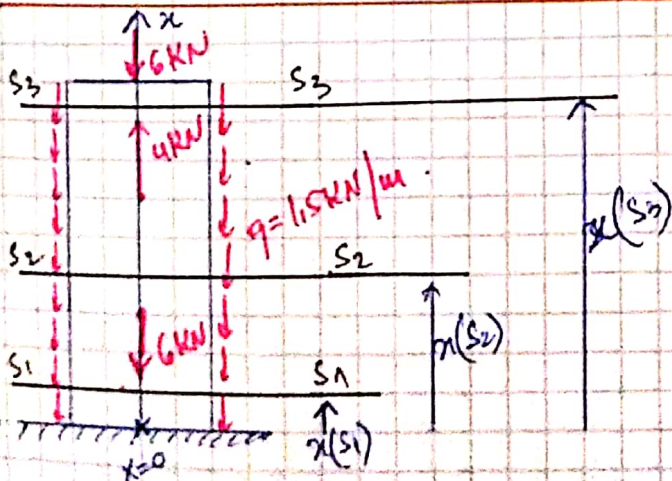 x
6KN
S3 S3
4KN
q=1,5KN/m.
x(S3)
S2 S2
6KN
x(S2)
S1 S1
x(S1)
x=0